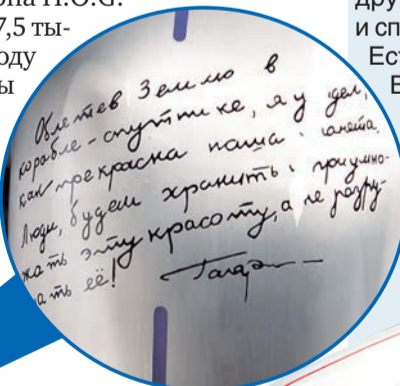 H.O.G.
7,5 ты-
оду
ы
дру
и сп
Ест
Облетев Землю в
корабле-спутнике, я увидел,
как прекрасна наша планета.
Люди, будем хранить и приумно-
жать эту красоту, а не разру-
ать её! Гагарин